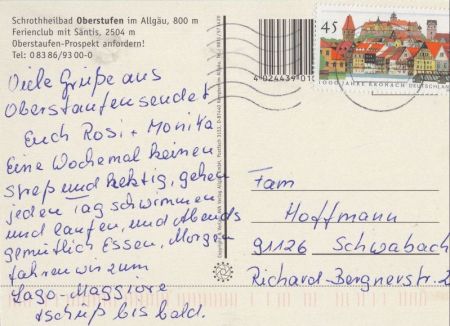 Schrothheilbad Oberstufen im Allgäu, 800 m
Ferienclub mit Säntis, 2504 m
Oberstaufen-Prospekt anfordern!
Tel: 0 83 86/93 00-0
Viele Grüße aus
Oberstaufen sendet
Euch Rosi + Monika
Eine Wochemal keinen
streß und hektig, gehen
jeden Tag schwimmen
und laufen, und Abends
gemütlich Essen, Morgen
fahren wir zum
Lago-Maggiore
tschüß bis bald.
45
1000 JAHRE KRONACH DEUTSCHLAND
Fam
Hoffmann
91126 Schwabach
Richard-Bergnerstr.